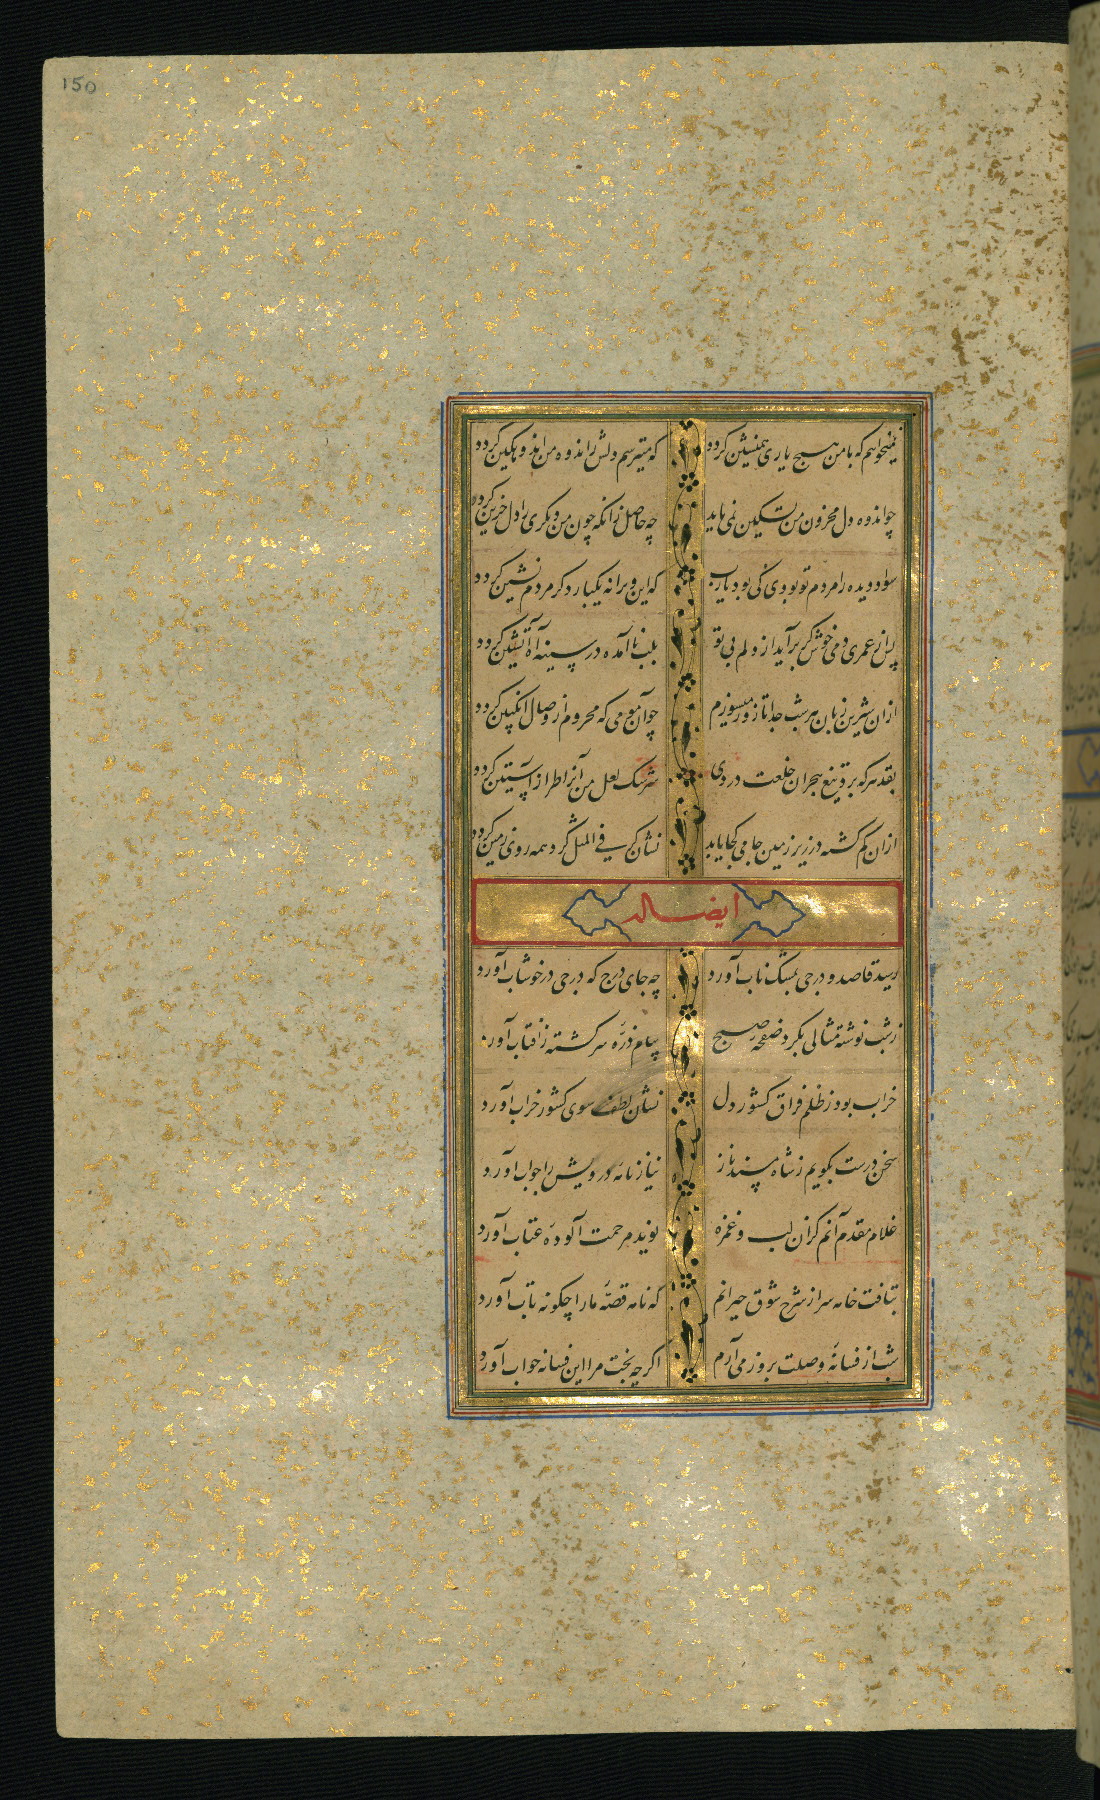 150
نمیخواهم که با من هیچ یاری همنشین گردد که میترسم دلش ز اندوه من اندوهگین گردد
چو اندوه دل محزون من تسکین نمی یابد چه حاصل زانکه چون من دیگری را دل حزین گردد
سواد دیده را مردم تو بودی کی بود یارب که این ویرانه یکبار دگر مردم نشین گردد
پس از عمری دمی خوش گر برآید از دلم بی تو بلب ناآمده در سینه آه آتشین گردد
ازان شیرین زبان هر شب جدا تا روز میسوزم چو آن مومی که محروم از وصال انگبین گردد
بقد هر که برد تیغ هجران خلعت دردی سرشک لعل من آنرا طراز آستین گردد
ازان گم گشته در زیر زمین جامی کجا یابد نشان گر فی المثل گرد همه روی زمین گردد
ایضا له
رسید قاصد و درجی بمشک ناب آورد چه جای درج که درجی در خوشاب آورد
ز شب نوشته مثالی بگرد صفحه صبح پیام ذره سرگشته ز آفتاب آورد
خراب بود ز ظلم فراق کشور دل نشان لطف سوی کشور خراب آورد
سخن درست بگویم ز شاه مسند ناز نیاز نامه درویش را جواب آورد
غلام مقدم آنم کزان لب و غمزه نوید مرحمت آلوده عتاب آورد
بتافت خامه سر از شرح شوق حیرانم که نامه قصه ما را چگونه تاب آورد
شب از فسانه وصلت بروز می آرم اگر چه بخت مرا این فسانه خواب آورد